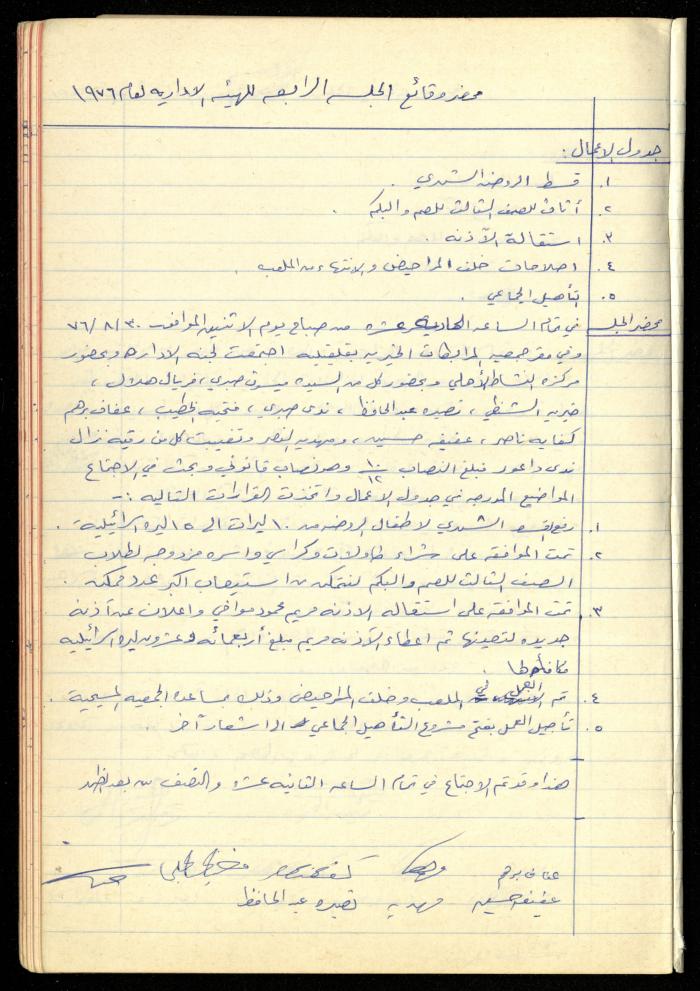 محضر وقائع الجلسه الرابعه للهيئه الاداريه لعام ١٩٧٦
جدول الاعمال :
١. قسط الروضه الشهري .
٢. أثاث للصف الثالث للصم والبكم .
٣. استقالة الآذنه .
٤. اصلاحات خلف المراحيض والانتهاء من الملعب .
٥. التأهيل الجماعي .
محضر الجلسه
في تمام الساعه الحاديه عشره من صباح يوم الاثنين الموافق ٣٠/٨/٧٦
وفي مقر جمعيه المرابطات الخيريه بقلقيليه اجتمعت لجنه الاداره وبحضور
مركزة النشاط الأهلي وبحضور كل من السيده ميسر صبري ، فريال هلال ،
خيريه الشنطي ، نصيره عبد الحافظ ، ندى صبري ، فتحيه الخطيب ، عفاف برهم
كفايه ناصر ، عفيفه حسين ، ومهديه النصر وتغيبت كل من رقيه نزال
ندى داعور فبلغ النصاب ١٠/١٢ وهو نصاب قانوني وبحث في الاجتماع
المواضيع المدرجه في جدول الاعمال واتخذت القرارات التاليه :-
١. رفع القسط الشهري لاطفال الروضه من ١٠ ليرات الى ١٥ ليره اسرائيلية .
٢. تمت الموافقه على شراء طاولات وكراسي واسره مزدوجه لطلاب
الصف الثالث للصم والبكم لنتمكن من استيعاب اكبر عدد ممكن .
٣. تمت الموافقه على استقاله الاذنه مريم محمود موافي واعلان عن آذنه
جديده لتعيينها ثم اعطاء الآذنه مريم مبلغ أربعمائه وعشرون ليره اسرائيليه
مكافأه لها .
٤. تم العمل في الملعب وخلف المراحيض وذلك بمساعده الجمعيه المسيحية .
٥. تأجيل العمل بفتح مشروع التأهيل الجماعي الى اشعار آخر .
هذا وقد تم الاجتماع في تمام الساعه الثانيه عشره والنصف من بعد الظهر
عفاف برهم
عفيفه حسين مهديه نصيره عبد الحافظ